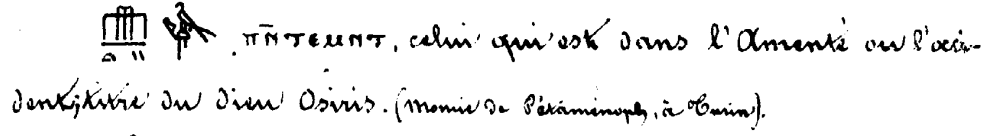 ⲡⲛ̄ⲧⲉⲙⲛⲧ, celui qui est dans l'Amenté ou l'occi-
dent, titre du Dieu Osiris. (Momie de Pétaménoph, à Turin).